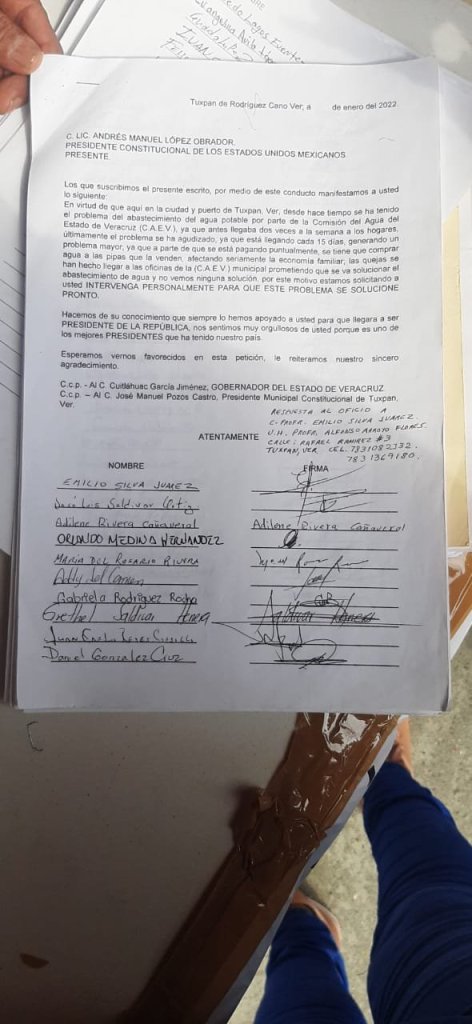 Guadalupe
Tuxpan de Rodríguez Cano Ver, a de enero del 2022.
C. LIC. ANDRÉS MANUEL LÓPEZ OBRADOR.
PRESIDENTE CONSTITUCIONAL DE LOS ESTADOS UNIDOS MEXICANOS
PRESENTE.
Los que suscribimos el presente escrito, por medio de este conducto manifestamos a usted
lo siguiente:
En virtud de que aquí en la ciudad y puerto de Tuxpan, Ver, desde hace tiempo se ha tenido
el problema del abastecimiento del agua potable por parte de la Comisión del Agua del
Estado de Veracruz (C.A.E.V.), ya que antes llegaba dos veces a la semana a los hogares,
últimamente el problema se ha agudizado, ya que está llegando cada 15 días, generando un
problema mayor, ya que a parte de que se está pagando puntualmente, se tiene que comprar
agua a las pipas que la venden, afectando seriamente la economía familiar; las quejas se
han hecho llegar a las oficinas de la (C.A.E.V.) municipal prometiendo que se va solucionar el
abastecimiento de agua y no vemos ninguna solución, por este motivo estamos solicitando a
usted INTERVENGA PERSONALMENTE PARA QUE ESTE PROBLEMA SE SOLUCIONE
PRONTO.
Hacemos de su conocimiento que siempre lo hemos apoyado a usted para que llegara a ser
PRESIDENTE DE LA REPÚBLICA, nos sentimos muy orgullosos de usted porque es uno de
los mejores PRESIDENTES que ha tenido nuestro país.
Esperamos vernos favorecidos en esta petición, le reiteramos nuestro sincero
agradecimiento.
C.c.p. - Al C. Cuitláhuac García Jiménez, GOBERNADOR DEL ESTADO DE VERACRUZ
C.c.p. – Al C. José Manuel Pozos Castro, Presidente Municipal Constitucional de Tuxpan,
Ver.
RESPUESTA AL OFICIO A
C. PROFR. EMILIO SILVA JUAREZ.
U.H. PROFR. ALFONSO ARROYO FLORES.
CALLE: RAFAEL RAMIREZ #3
TUXPAN, VER CEL. 7831082132.
7831369180.
ATENTAMENTE
NOMBRE FIRMA
EMILIO SILVA JUAREZ
José Luis Saldivar
Adilene Rivera Cañaveral Adilene Rivera Cañaveral
ORLANDO MEDINA HERNANDEZ
MARIA DEL ROSARIO RIVERA
Addy del Carmen
Gabriela Rodríguez Rocha
Grethel Saldivar Herrera
Juan Carlos
Daniel Gonzalez Cruz